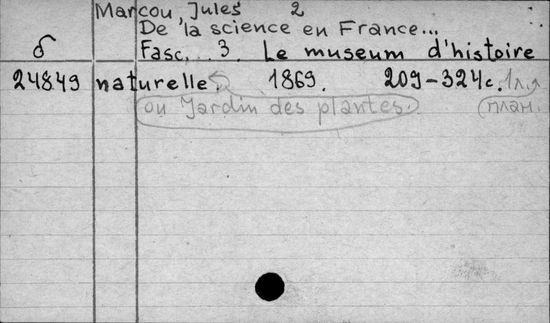 Marcou, Jules 2
De la science en France...
б Fasc. .. 3. Le museum d'histoire
24849 naturelle. 1869. 209-324с. 1л.
ou Jardin des plantes. (план.